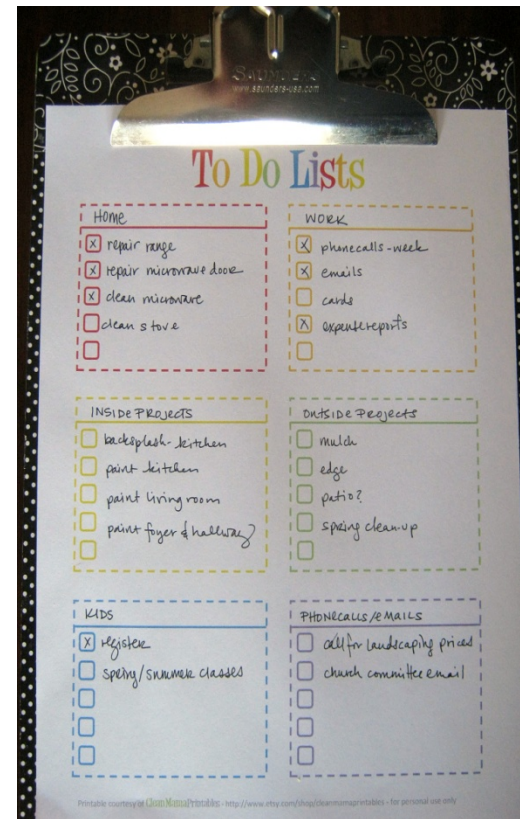 SAUNDERS
www.saunders-usa.com
To Do Lists
Home
x repair range
x repair microwave door
x clean microwave
clean stove
WORK
x phonecalls - week
x emails
cards
x expense reports
INSIDE PROJECTS
backsplash - kitchen
paint kitchen
paint living room
paint foyer & hallway?
OUTSIDE PROJECTS
mulch
edge
patio?
spring clean-up
KIDS
x register
spring/summer classes
PHONECALLS/EMAILS
call for landscaping prices
church committee email
Printable courtesy of Clean Mama Printables - http://www.etsy.com/shop/cleanmamaprintables - for personal use only